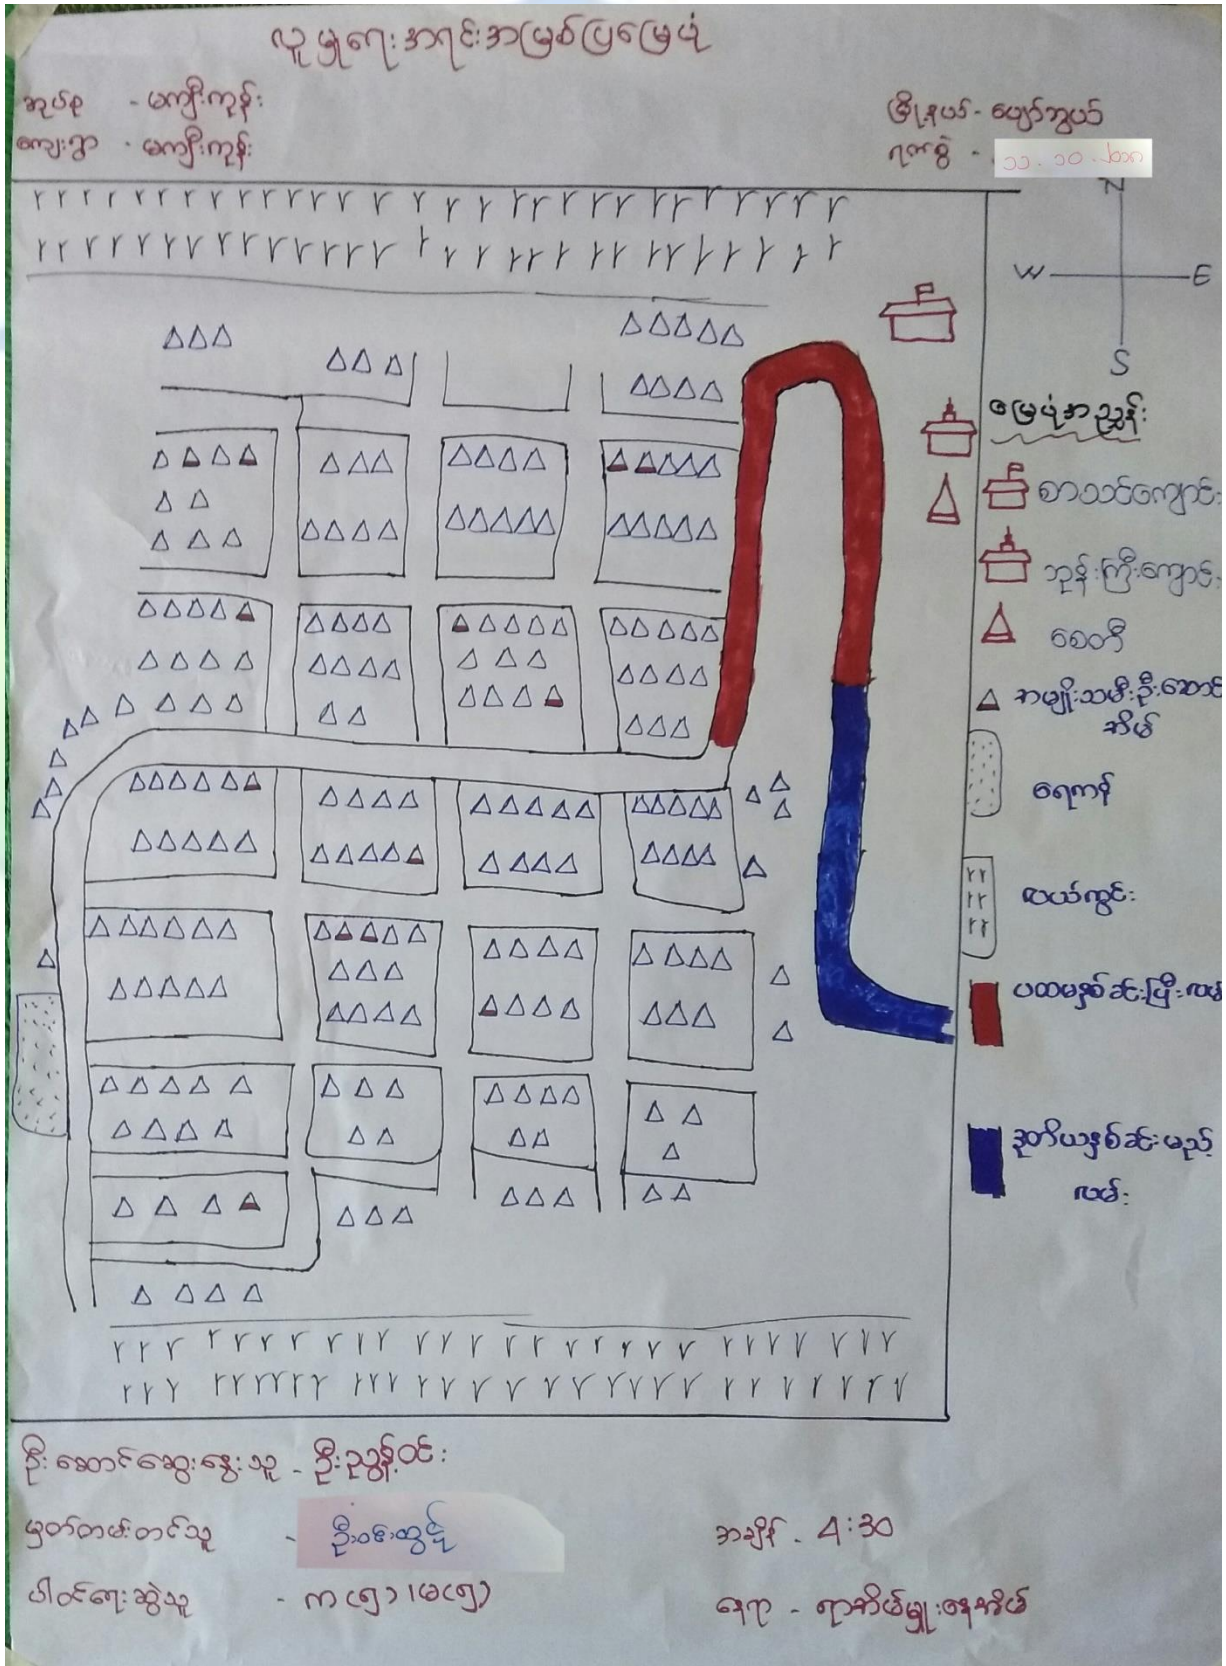 လူမှုရေးအရင်းအမြစ်ပြမြေပုံ
အုပ်စု - မကျီးကုန်း
ကျေးရွာ - မကျီးကုန်း
မြို့နယ် - ပျော်ဘွယ်
ရက်စွဲ - ၁၁.၁၀.၂၀၁၈
N
W E
S
မြေပုံအညွှန်း
စာသင်ကျောင်း
ဘုန်းကြီးကျောင်း
စေတီ
အမျိုးသမီးဦးဆောင်
အိမ်
ရေကန်
လယ်ကွင်း
ပထမနှစ်ခင်းပြီးလမ်း
ဒုတိယနှစ်ခင်းမည့်
လမ်း
ဦးဆောင်ဆွေးနွေးသူ - ဦးညွန့်ဝင်း
မှတ်တမ်းတင်သူ -
အချိန် - 4:30
ပါဝင်ရေးဆွဲသူ - က(၅)၊မ(၅)
နေရာ - ရာအိမ်မှူးနေအိမ်